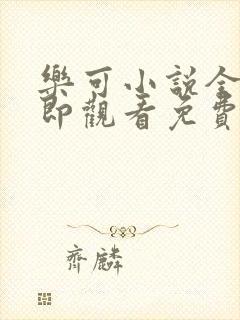 樂可小説全
即觀看免費
齊麟